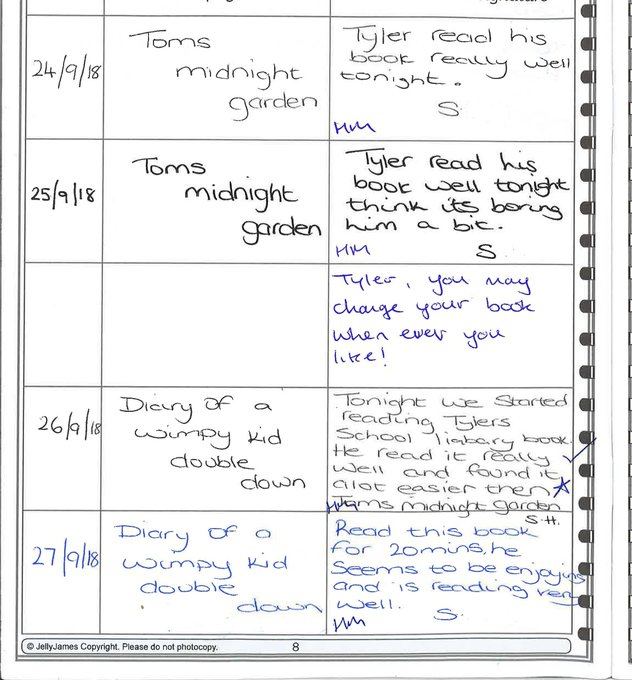 24/9/18
Toms
midnight
garden
Tyler read his
book really well
tonight.
S
HM
25/9/18
Toms
midnight
garden
Tyler read his
book well tonight
think its boring
him a bit.
HM S
Tyler, you may
change your book
when ever you
like!
26/9/18
Diary of a
wimpy kid
double
down
Tonight we started
reading Tylers
School liabary book.
He read it really
well and found it
alot easier then
Toms midnight garden
HM S.H.
27/9/18
Diary of a
wimpy kid
double
down
Read this book
for 20mins, he
seems to be enjoying
and is reading very
well. S.
HM
© JellyJames Copyright. Please do not photocopy. 8